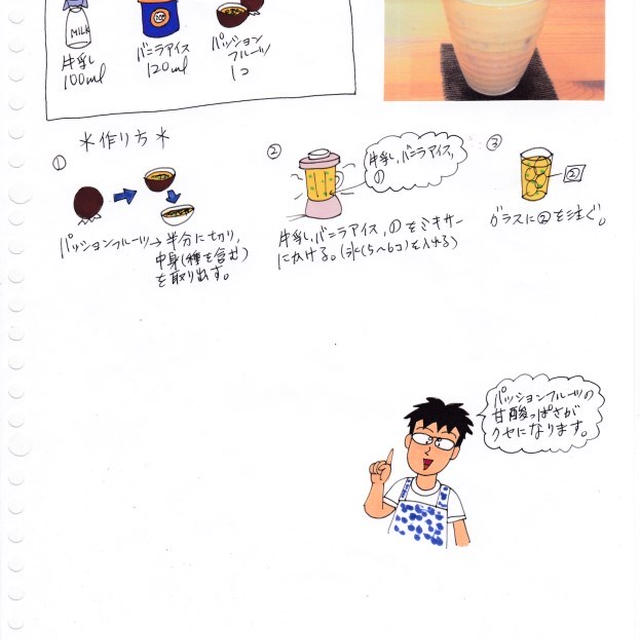 MILK
牛乳
100ml
バニラアイス
120ml
パッション
フルーツ
1コ
＊作り方＊
①
パッションフルーツ→半分に切り,
中身(種を含む)
を取り出す。
②
牛乳,バニラアイス,
①
牛乳,バニラアイス,①をミキサー
にかける。(氷(5〜6コ)を入れる)
③
②
グラスに②を注ぐ。
パッションフルーツの
甘酸っぱさが
クセになります。